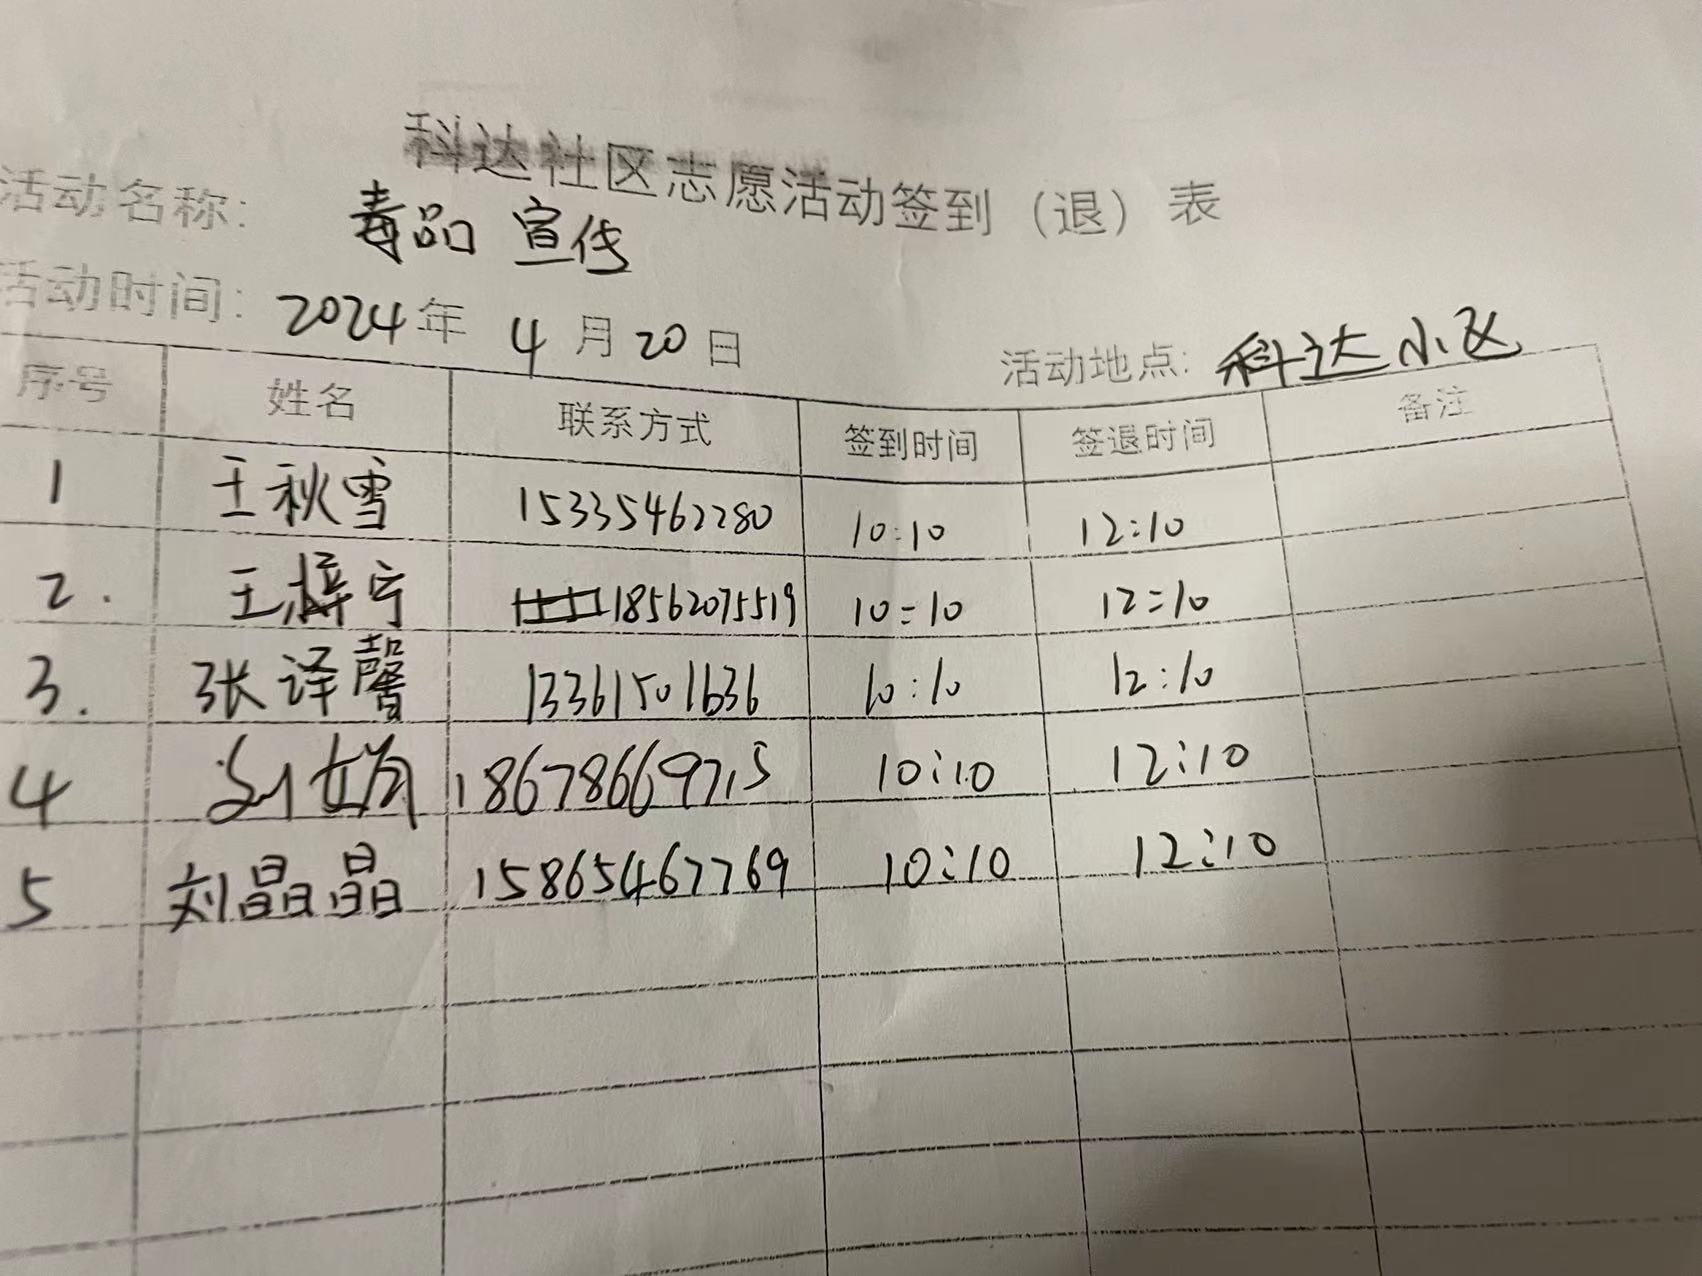 科达社区志愿活动签到（退）表
活动名称: 毒品 宣传
活动时间: 2024年 4月20日 活动地点: 科达小区
序号 姓名 联系方式 签到时间 签退时间 备注
1 王秋雪 15335462280 10:10 12:10
2. 王梓宁 18562075519 10:10 12:10
3. 张译馨 13361501636 10:10 12:10
4 刘娟 18678669715 10:10 12:10
5 刘晶晶 15865467769 10:10 12:10